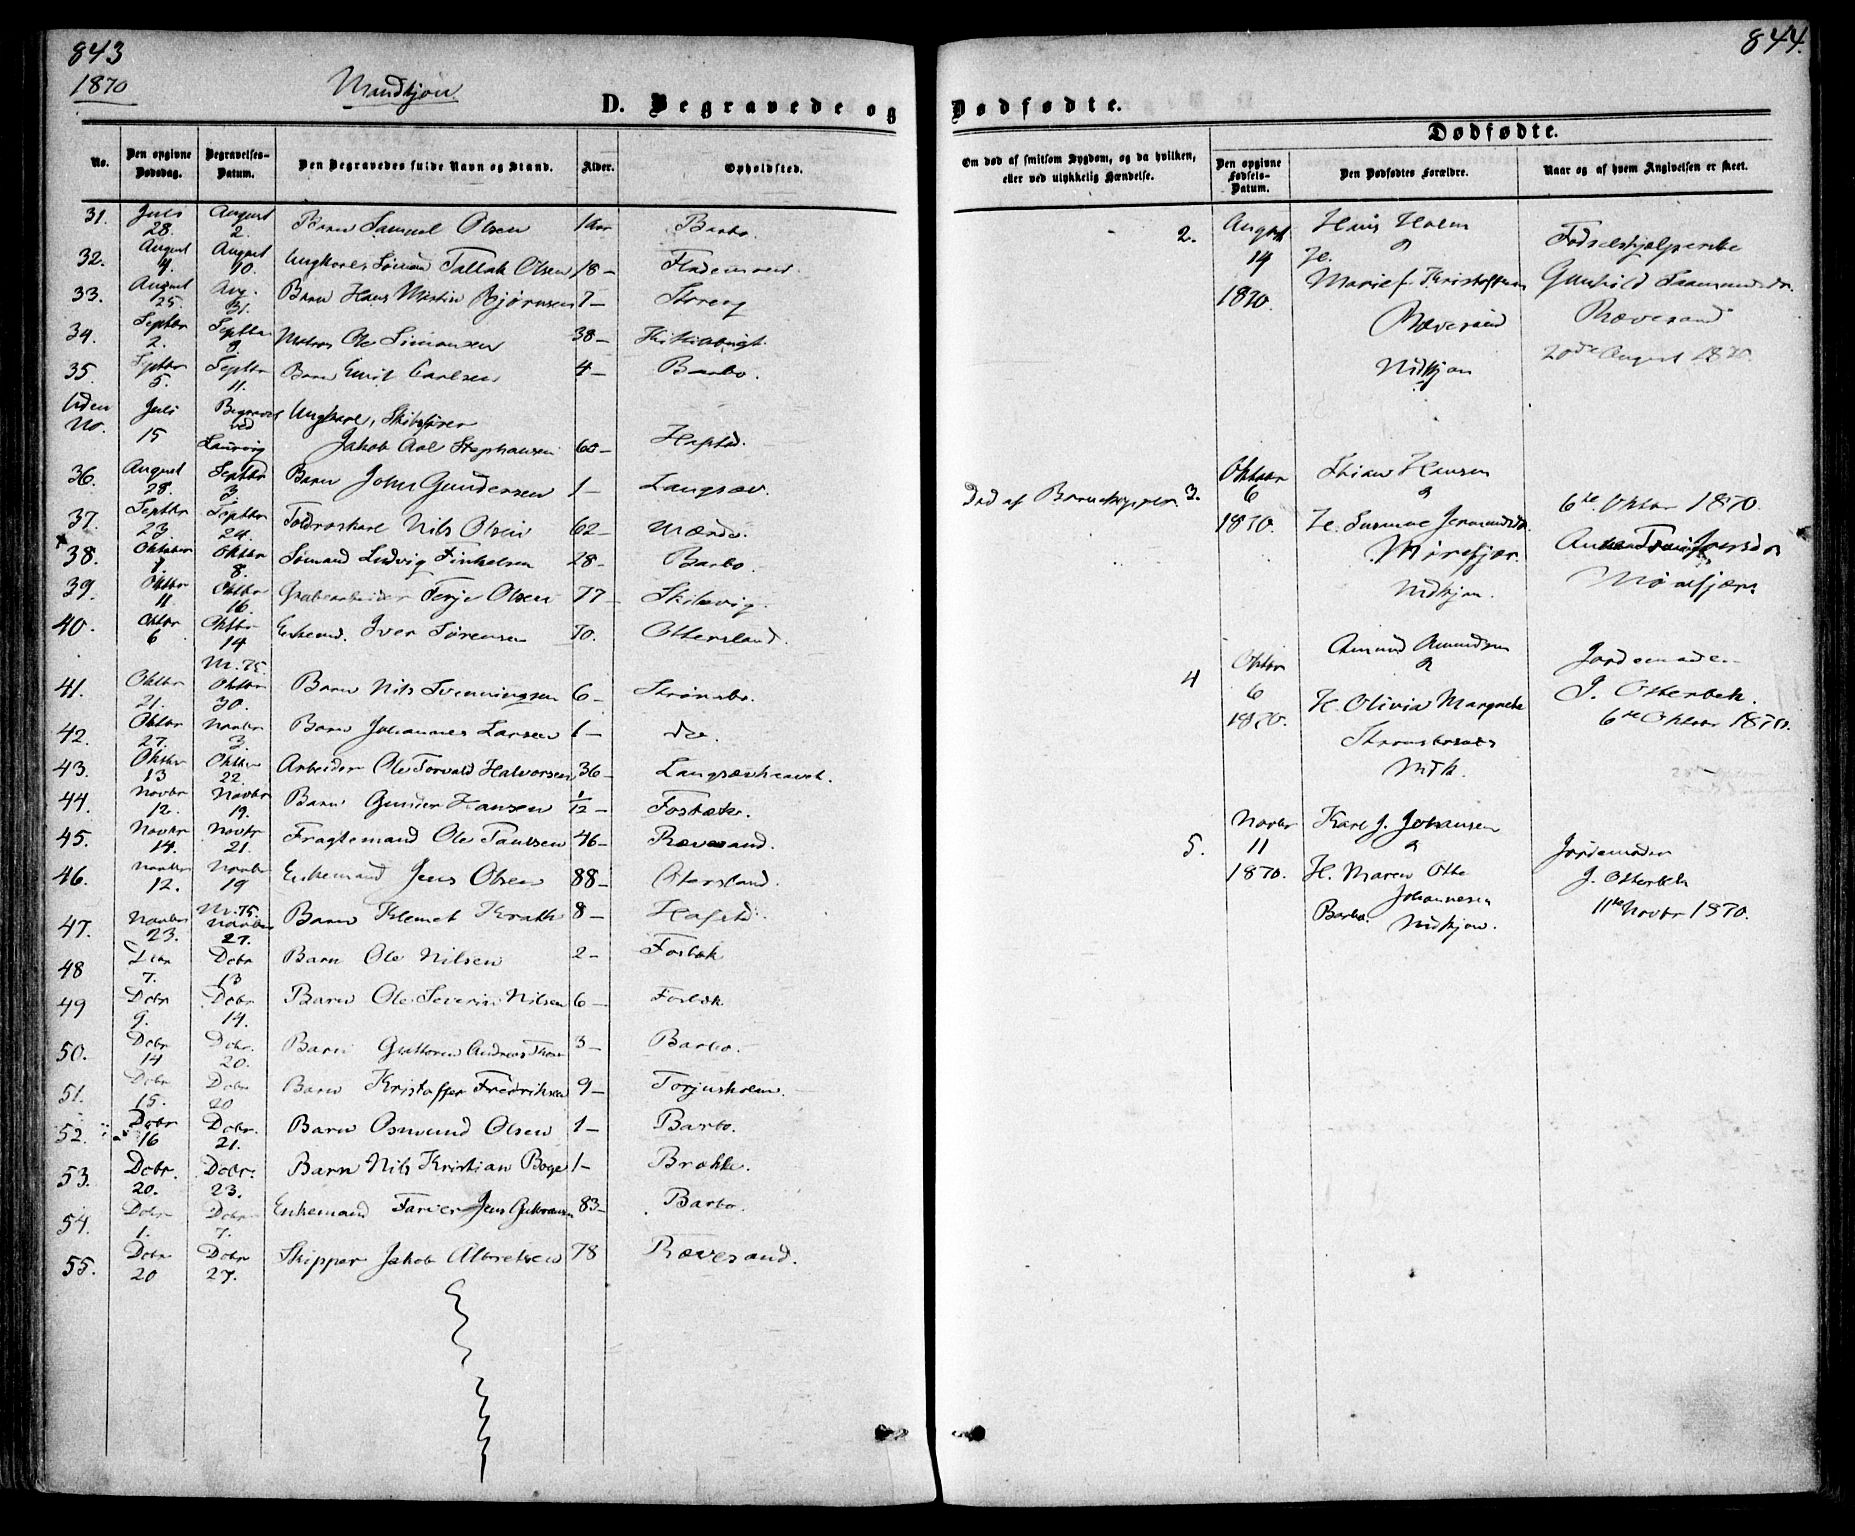 843
1870
Mandkjøn.
D. Begravede og
No.
Den opgivne Dødsdag.
Begravelses-Datum.
Den Begravedes fulde Navn og Stand.
Alder.
Opholdsted.
31. Juli 28. August 2. Barn Samuel Olsen 1 Aar Barbo.
32. August 4. August 10. Ungkarl Sömand Tallak Olsen 18 –
33. August 25. Aug. 31. Barn Hans Martin Bjørnsen 7 –
34. Septbr 2. Septbr 8. Matros Ole Simonsen 38 –
35. Septbr 5. Septbr 11. Barn Emil Carlsen 4 – Barbo.
Uden No. Juli 15 Begravet ved Laurvig Ungkarl, Skibsfører
Jakob Aal Stephansen 60 –
36. August 28. Septbr 3. Barn John Gundersen 1 – Langsæv.
37. Septbr 23. Septbr 24. Toldroskarl Nils Olsen 62 –
38. Oktober Oktbr 8. Sömand Ludvig 28 – Barbo.
39. Oktbr 11. Oktbr 16. Terje Olsen 77 – Skilsvig.
40. Octbr 6 Oktbr 14 Enkemd. Iver Sørensen 70. Ottersland.
M. 75.
41. Oktbr 21. Oktbr 30. Barn Nils Svenningsen 6 – Strømsbo.
42. Oktbr 27. Novbr 3. Barn Johannes Larsen 1 – do.
43. Oktbr 13 Oktbr 22. Arbeider Ole Torvald Halvorsen 36 –
44. Novbr 12. Novbr 19. Barn Gunder Hansen 1/12 – Fosbæk.
45. Novbr 14. Novbr 21. Fragtemand Ole Taulsen 46 – Rævesand.
46. Novbr 12. Novbr 19 Enkemand Jens Olsen 88 – Ottersland.
M. 75.
47. Novbr 23. Novbr 27. Barn Klemet 8 – Hafsted.
48 7. Debr 13 Barn Ole Nilsen 2 – Fosbæk
49 Debr 9. Debr 14. Barn Ole Severin Nilsen 6 – Fosbæk.
50. Debr 14 Debr. 20. Barn Andreas 3 – Barbo.
51. Debr 15. Debr 20 Barn Kristoffer Fredriksen 9 – Torjusholm.
52. Debr 16 Debr. 21. Barn Osmund Olsen 1 – Barbo.
53. Debr. 20. Debr. 23. Barn Nils Kristian Boge 1 – Brække.
54. Debr 1. Debr 7. Enkemand Farver Jens 83 – Barbo.
55. Debr 20 Debr 27. Skipper Jakob Albretsen 78 Rævesand.
844.
Dødfødte.
Om død af smitsom Sygdom, og da hvilken, eller ved ulykkelig Hændelse.
Dødfødte.
Den opgivne Fødsels-Datum.
Den Dødfødtes Forældre.
Naar og af hvem Angivelsen er skeet.
2. August 14 1870. Hans Holm
&
H. Marie Kristoffersen
Rævesand
Mdkjøn
Fødselshjelperske
Gunhild
Rævesand
20de August 1870.
Død af
3. Oktober 6 1870. Hansen
&
H. Susanne
Mdkjøn.
6te Oktbr 1870.
4 Oktbr 6 1870. Amund Amundsen
&
H. Olivia Margrete
Mdk.
Jordemoder
J. Osterbek
6te Oktbr 1870.
5. Novbr 11 1870. Karl J. Johansen
&
H. Maren Otte
Johannesen
Barbo. Mdkjøn.
Jordemoder
J. Osterbek
11te Novbr 1870.